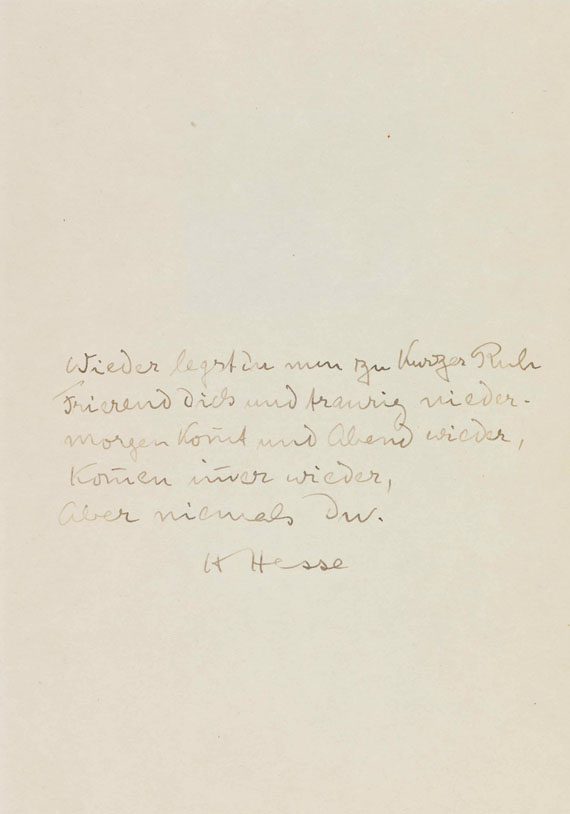 Wieder legst du nun zu kurzer Ruh
Frierend dich und traurig nieder.
Morgen kom̄t und Abend wieder,
Kom̄en im̄er wieder,
Aber niemals du.
H Hesse